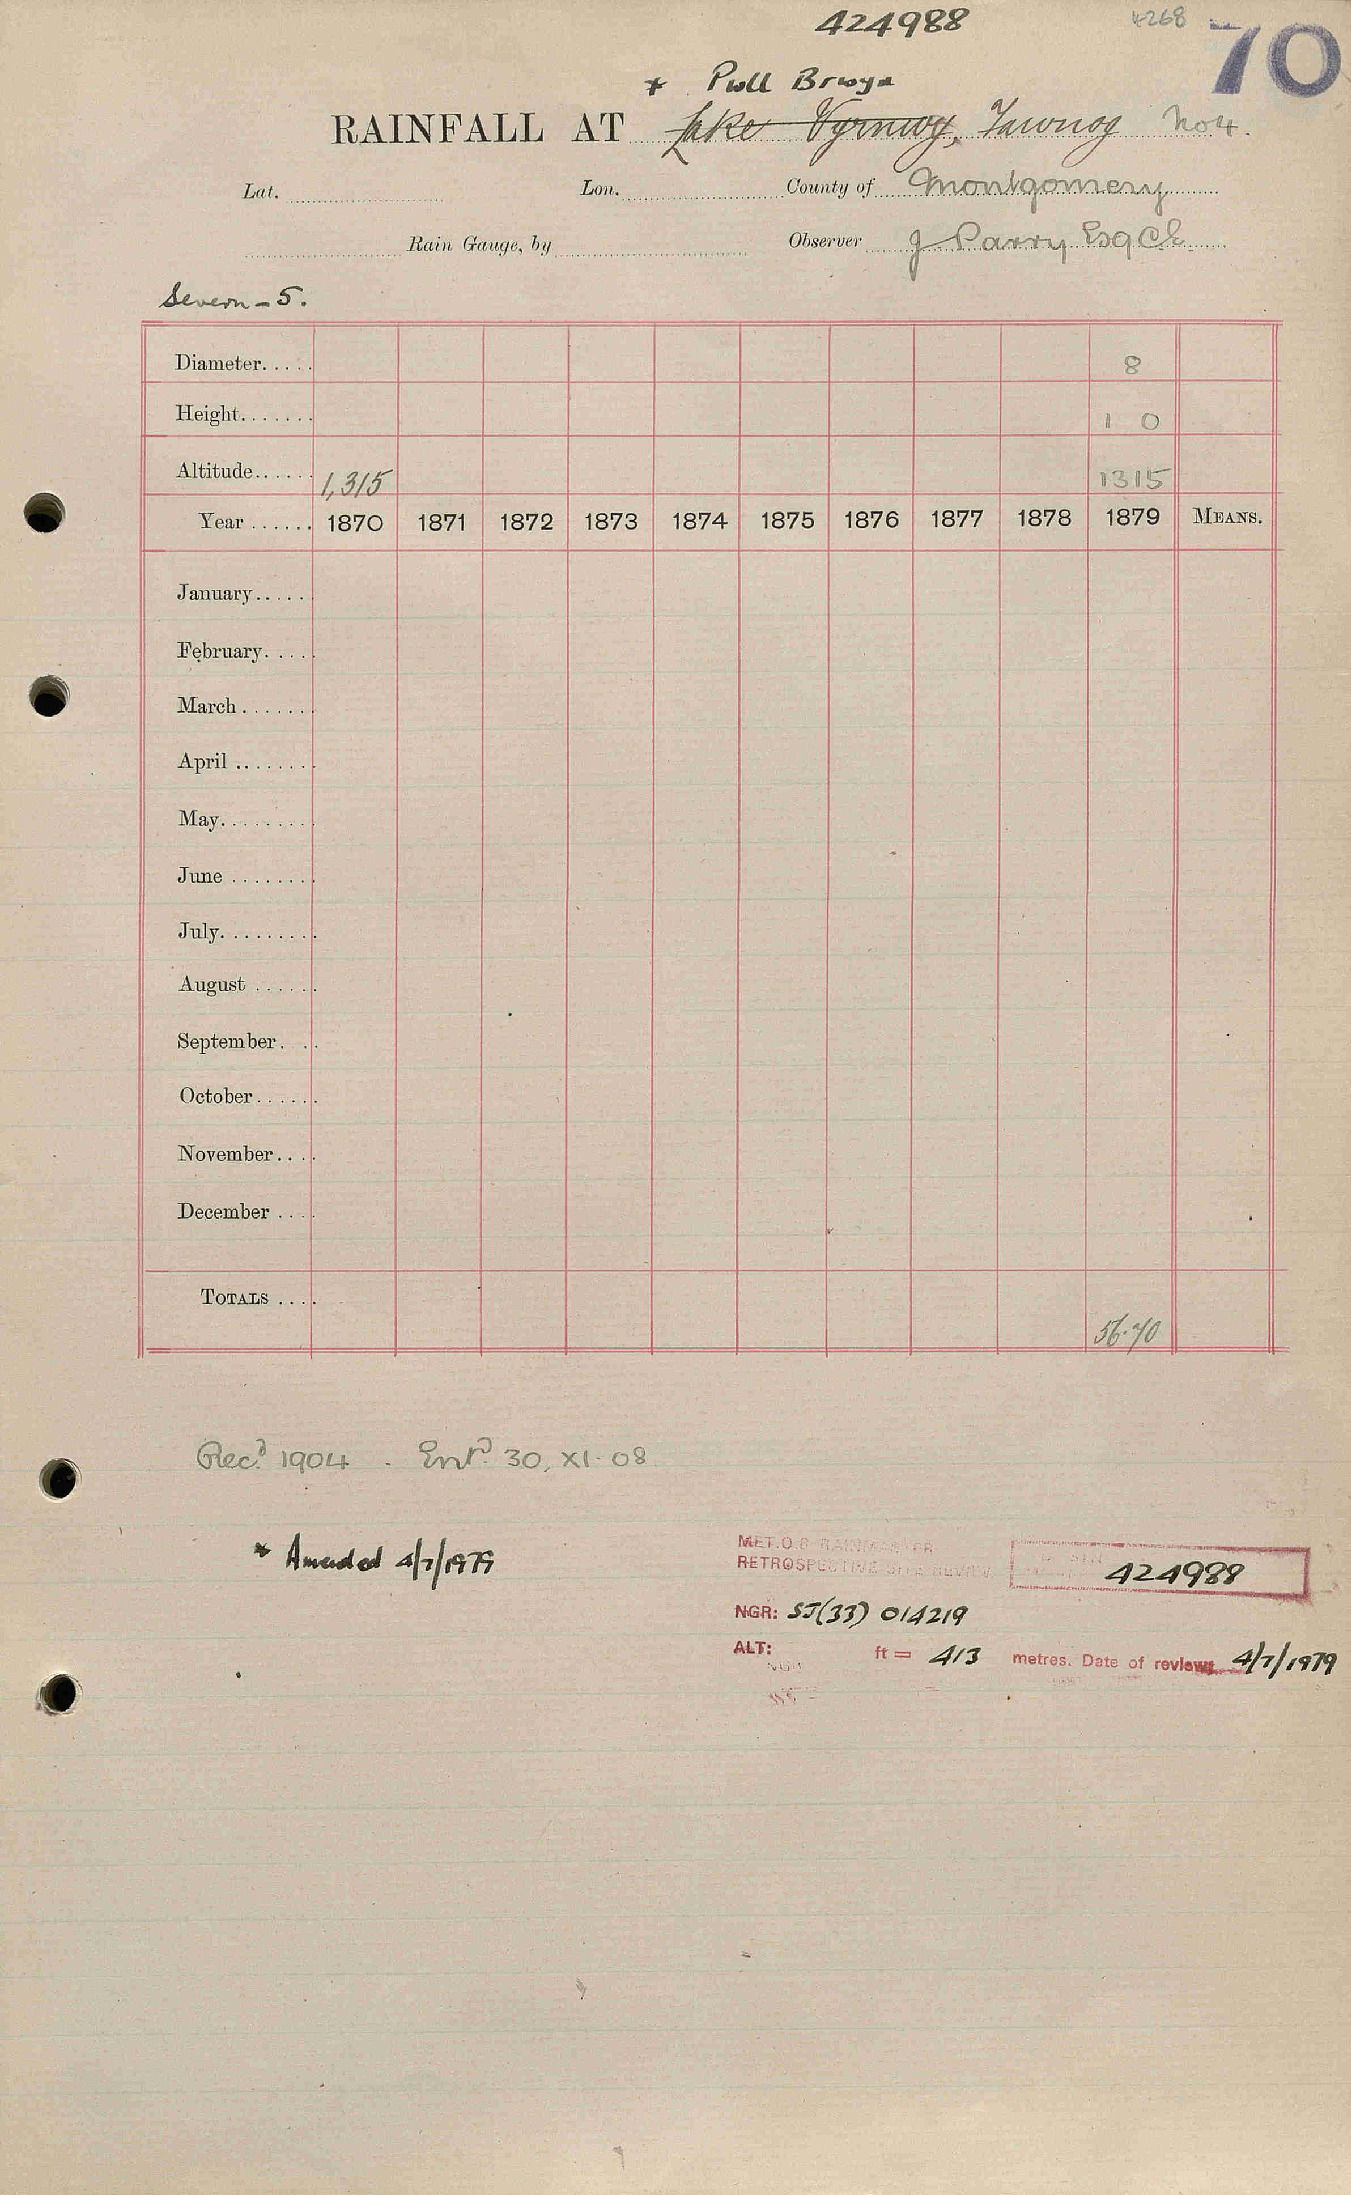 424988
4268
70
* Pwll Brwyn
RAINFALL AT Lake Vyrnwy, Tawnog No 4.
Lat. Lon. County of Montgomery
Rain Gauge, by Observer J Parry Esq CE
Severn - 5.
Diameter..... 8
Height....... 1 0
Altitude...... 1,315 1315
Year ...... 1870 1871 1872 1873 1874 1875 1876 1877 1878 1879 MEANS.
January.....
February.....
March.......
April ........
May.........
June ........
July.........
August ......
September. ..
October......
November....
December ....
TOTALS .... 56.70
Recd 1904 . Entd 30, XI. 08
* Amended 4/7/1979
MET.O.8 RAINMASTER
RETROSPECTIVE SITE REVIEW
424988
NGR: SJ(33) 014219
ALT: ft = 413 metres. Date of review 4/7/1979